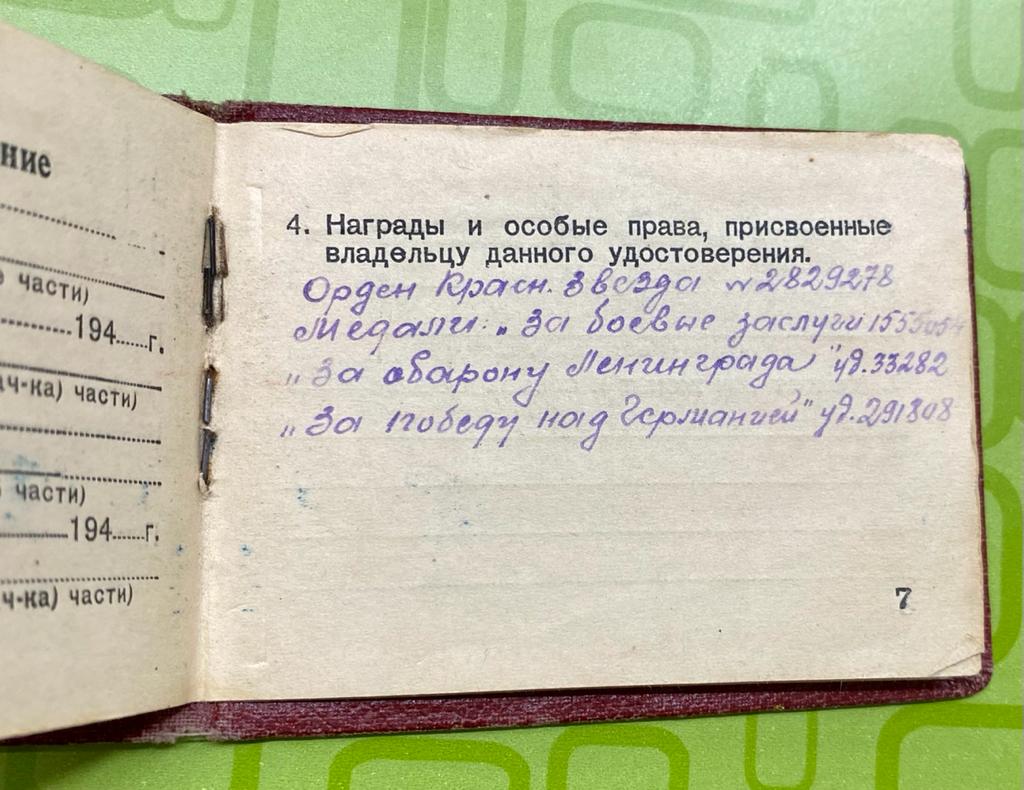 ние
части)
194......г.
ач-ка) части)
части)
194......г.
ч-ка) части)
4. Награды и особые права, присвоенные
владельцу данного удостоверения.
Орден Красн. Звезда № 2829278
Медали: „За боевые заслуги
„За обарону Ленинграда" уд. 33282
„За победу над Германией" уд. 291808
7